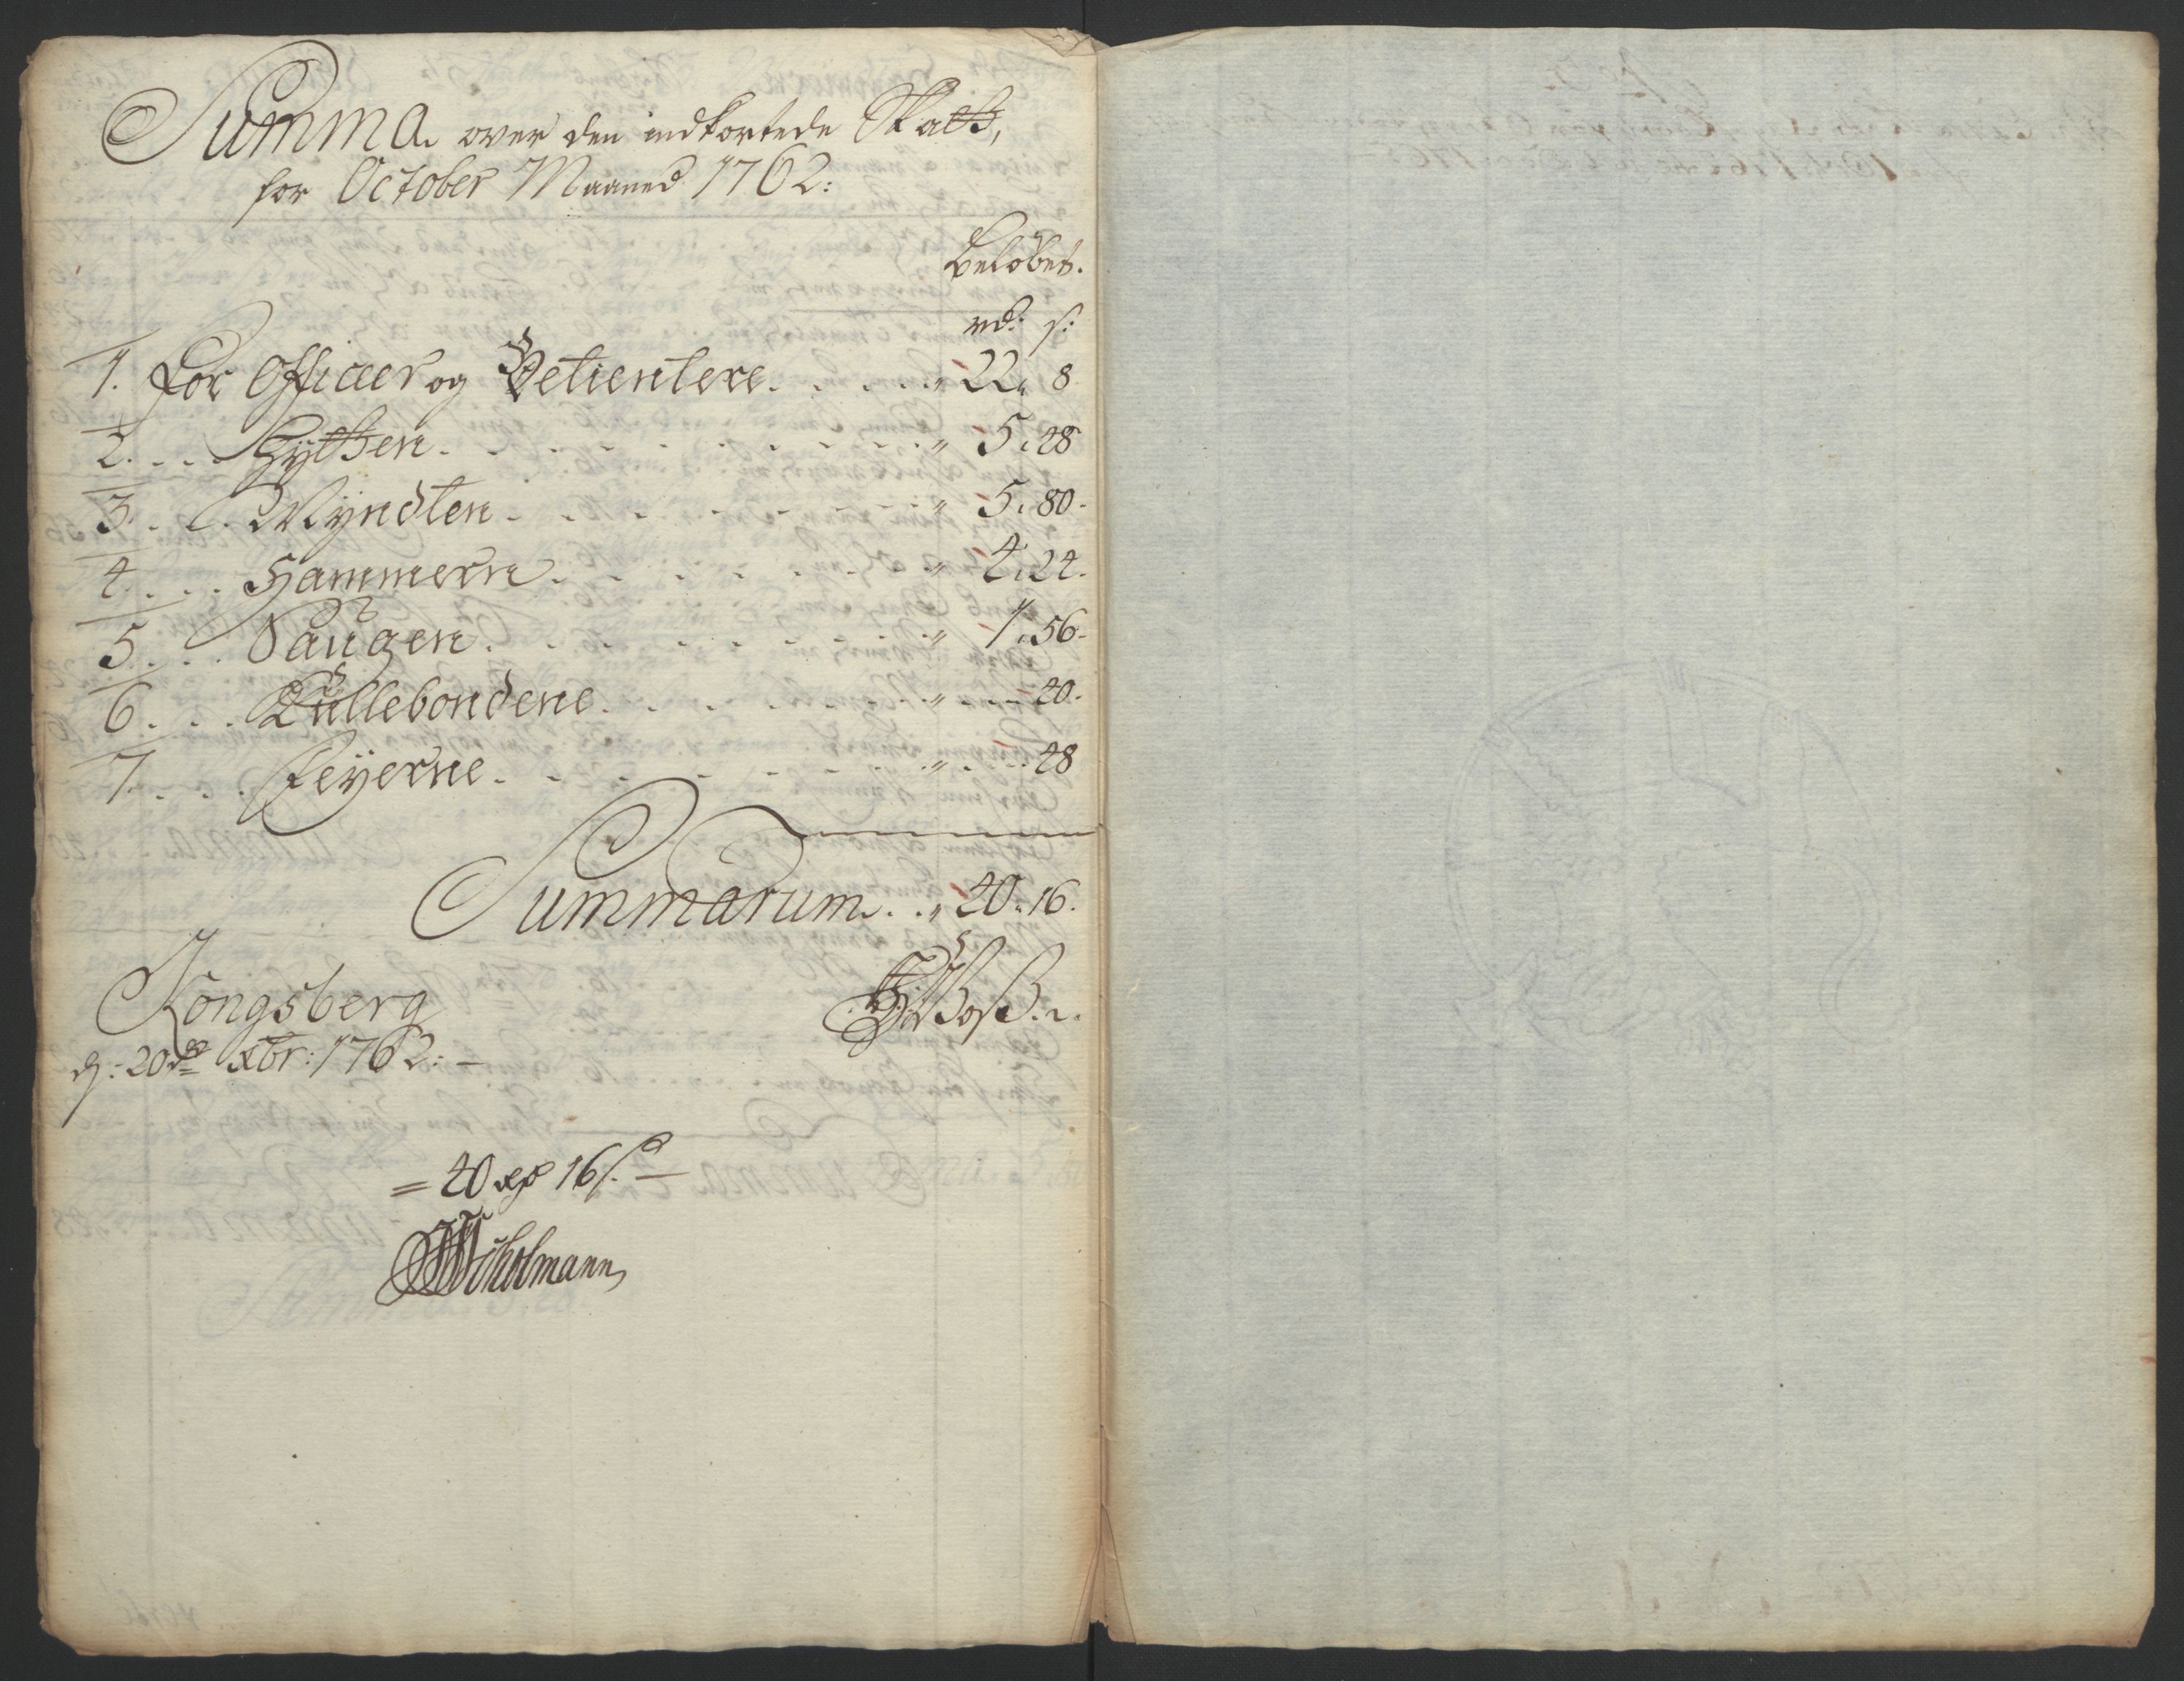 Summa over den indkortede Skatt,
for October Maaned 1762:
Beløbet.
rd: s:
1. For Officier og Betientere. . . . . " 22 " 8
2. . . . Hytten. . . . . . . . . " 5 " 28
3. . . . Myndten . . . . . . . . " 5 " 80.
4. . . . Hammern. . . . . . . . " 4 " 24.
5. . . . Saugen. . . . . . . . " 1 " 56.
6. . . . Kullebondene. . . . . . . " . . . 20.
7. . . . Feyerne. . . . . . . . " . . . 48
Summarum. . . " 40 " 16.
Kongsberg
d: 20de xbr: 1762: —
= 40 rd 16 s. —